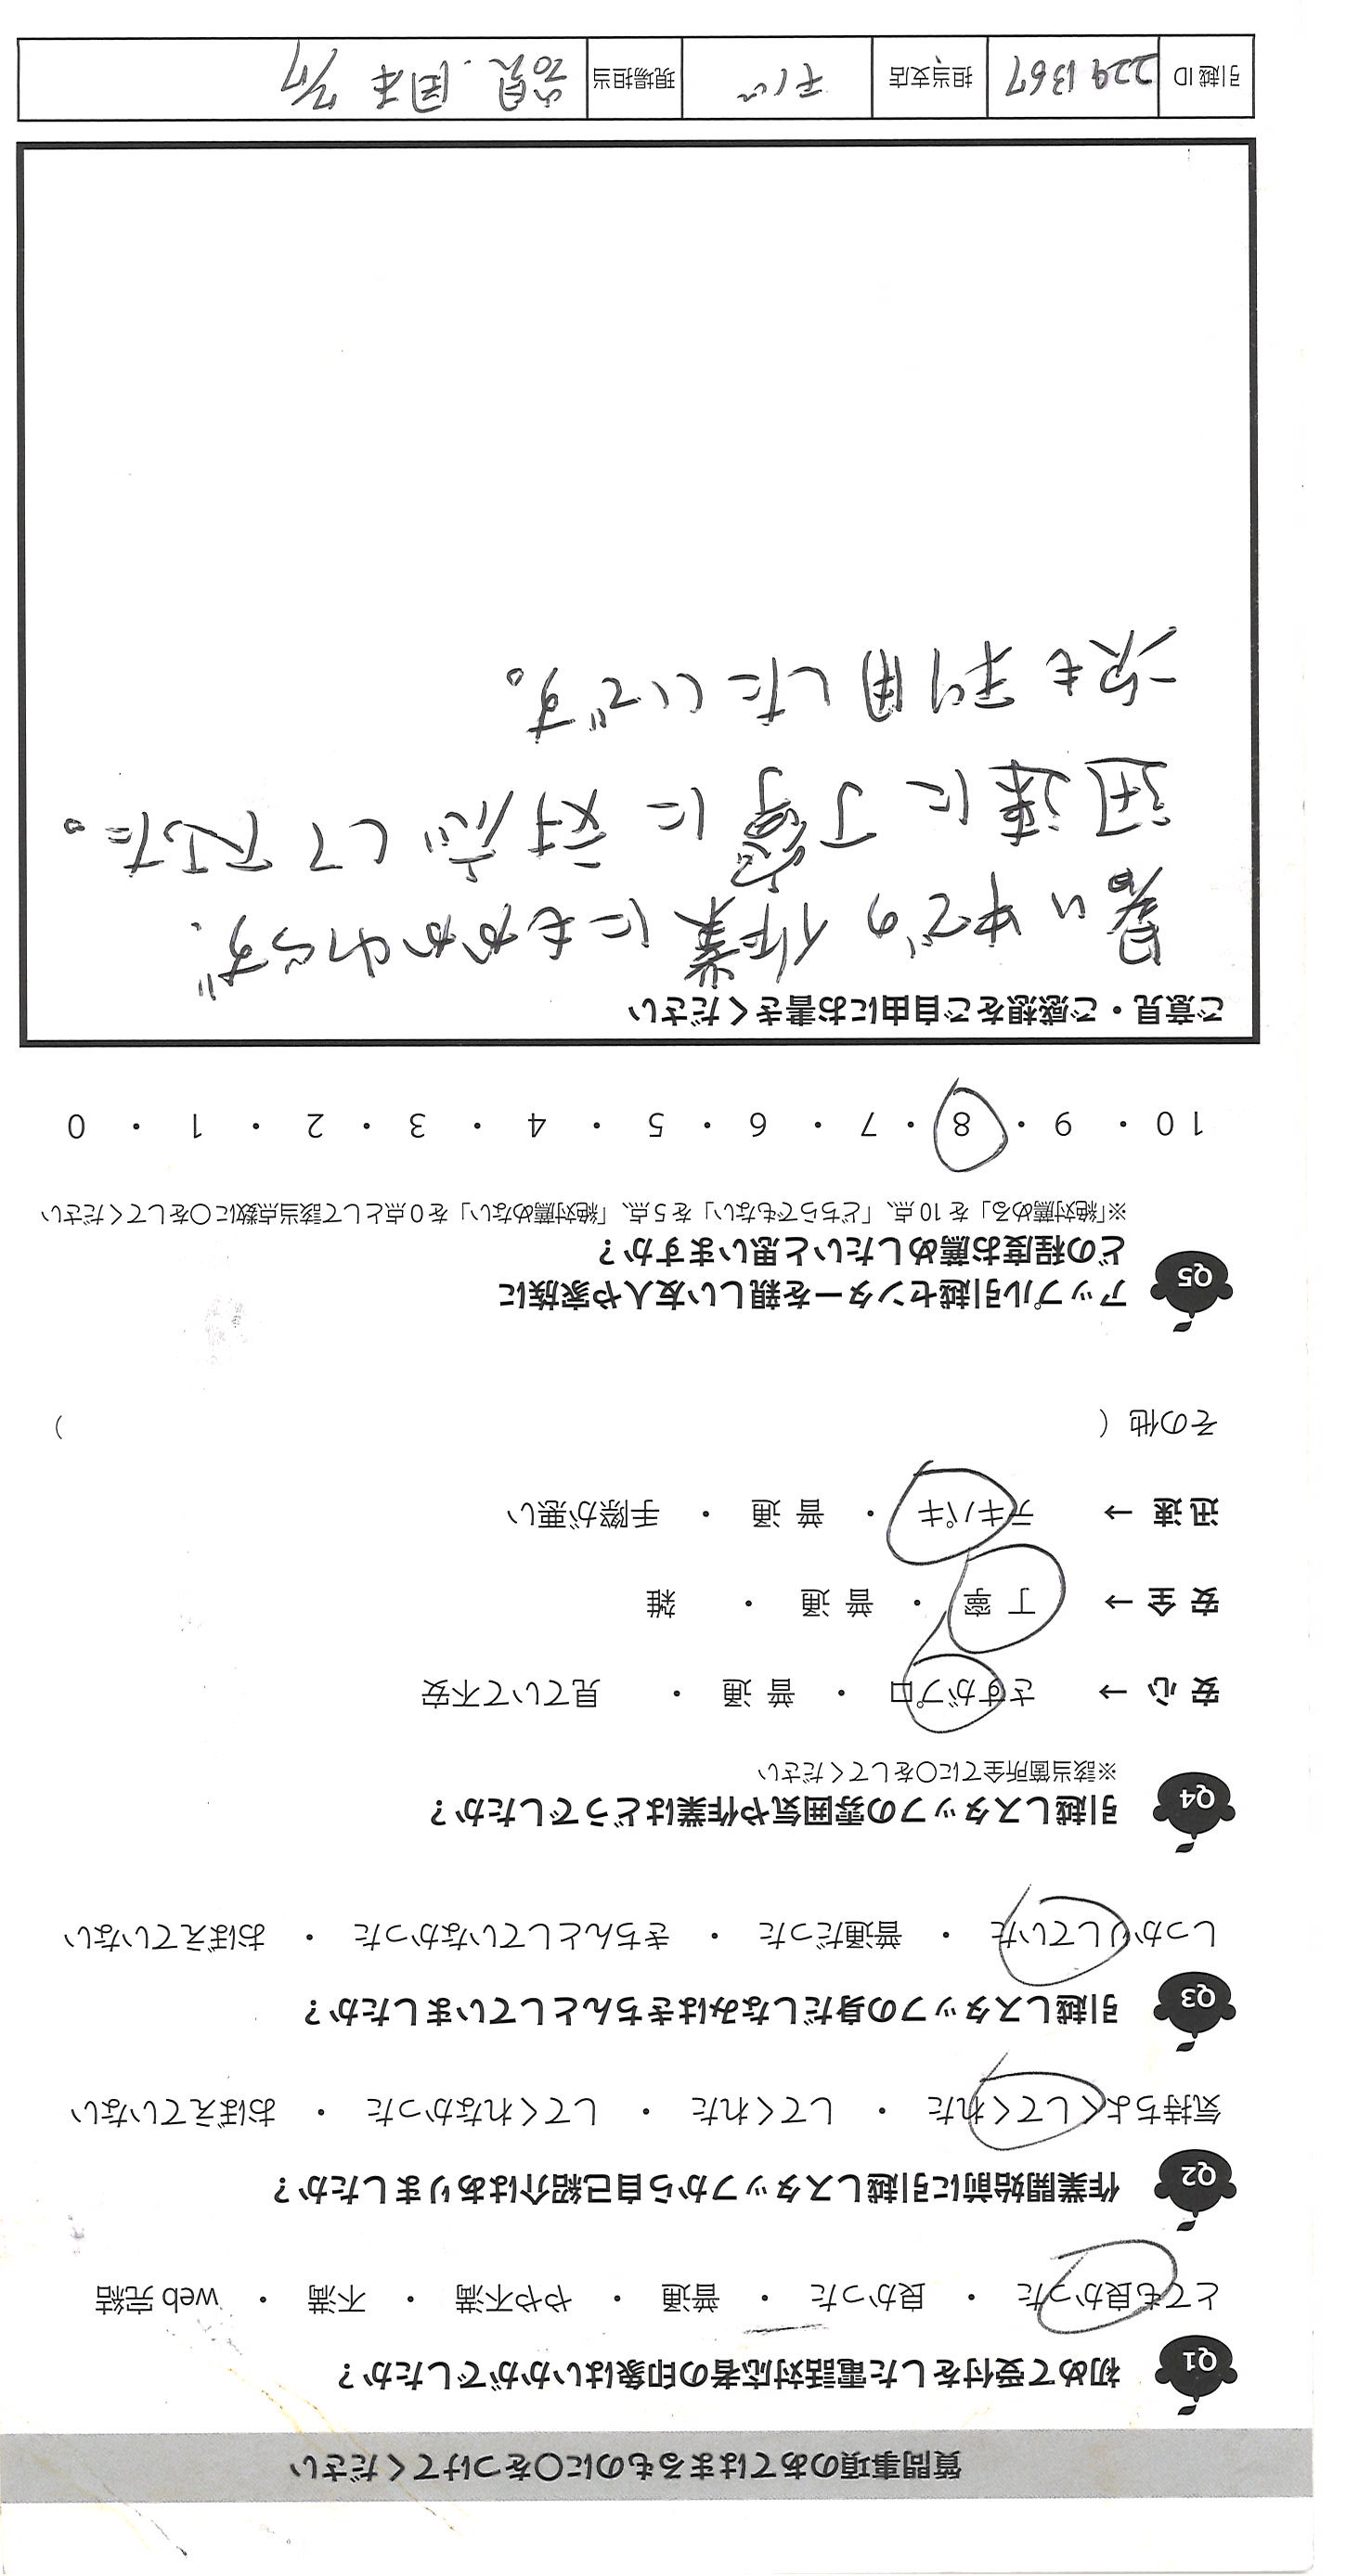 質問事項のあてはまるものに〇をつけてください
Q1 初めて受付をした電話対応者の印象はいかがでしたか？
とても良かった ・ 良かった ・ 普通 ・ やや不満 ・ 不満 ・ web 完結
Q2 作業開始前に引越しスタッフから自己紹介はありましたか？
気持ちよくしてくれた ・ してくれた ・ してくれなかった ・ おぼえていない
Q3 引越しスタッフの身だしなみはきちんとしていましたか？
しっかりしていた ・ 普通だった ・ きちんとしていなかった ・ おぼえていない
Q4 引越しスタッフの雰囲気や作業はどうでしたか？
※該当箇所全てに〇をしてください
安 心 → さすがプロ ・ 普 通 ・ 見ていて不安
安 全 → 丁 寧 ・ 普 通 ・ 雑
迅 速 → テキパキ ・ 普 通 ・ 手際が悪い
その他（ ）
Q5 アップル引越センターを親しい友人や家族に
どの程度お薦めしたいと思いますか？
※「絶対薦める」を 10 点、「どちらでもない」を 5 点、「絶対薦めない」を 0 点として該当点数に〇をしてください
10 ・ 9 ・ 8 ・ 7 ・ 6 ・ 5 ・ 4 ・ 3 ・ 2 ・ 1 ・ 0
ご意見・ご感想をご自由にお書きください
暑い中での作業にもかかわらず、
迅速に丁寧に対応して下さった。
次も利用したいです。
引越 ID 2291367 担当支店 チバ 現場担当 岡本 7/17